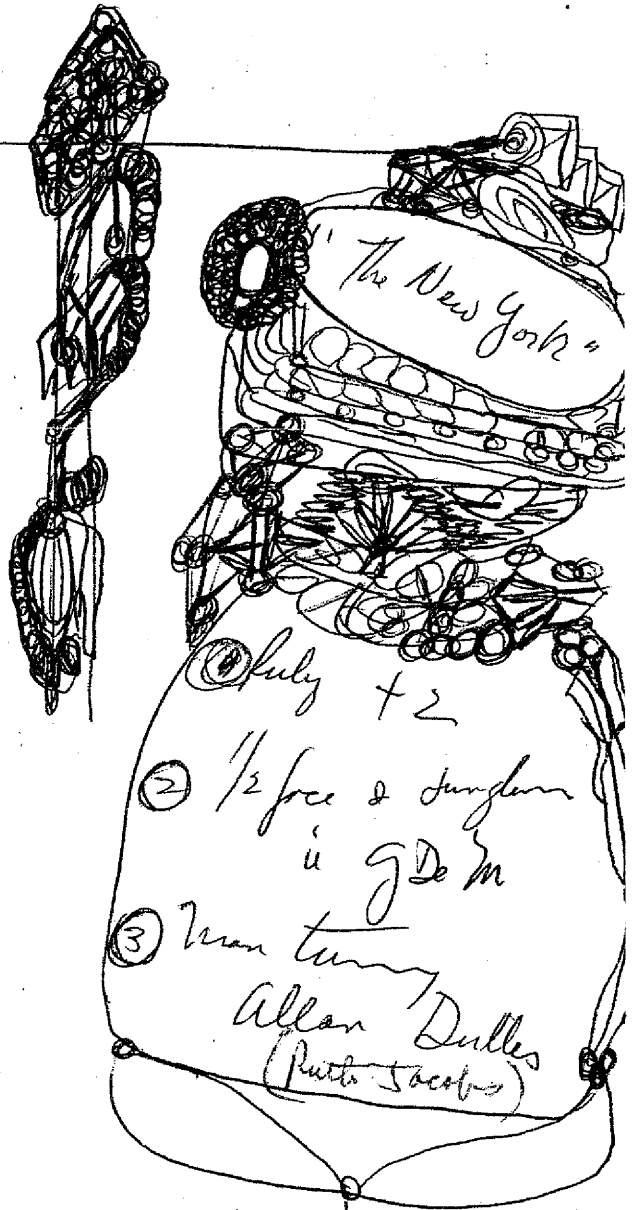 "The New York"
① July + 2
② 1/2 face &
G De M
③ Man turning
Allan Dulles
(Ruth Jacobs)